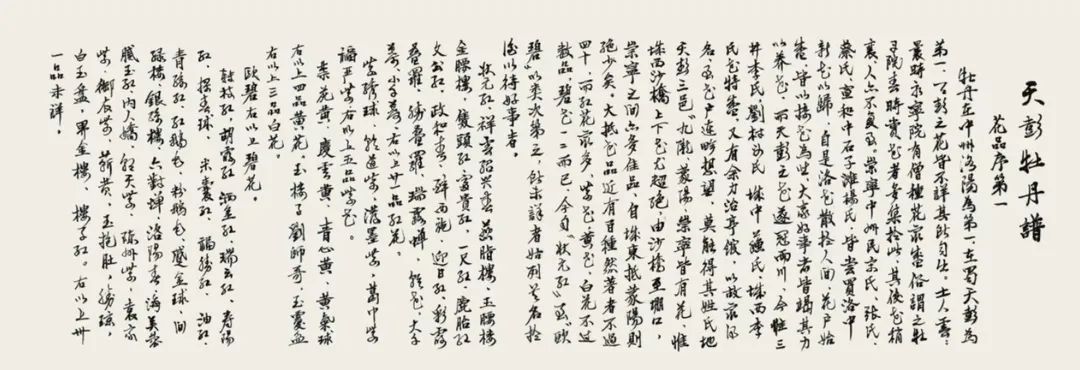 天彭牡丹譜
花品序第一
牡丹在中州洛陽為第一，在蜀天彭為
第一，天彭之花皆不詳其所自出，土人云：
曩時永寧院有僧種花最盛，俗謂之牡
丹院，春時賞花者多集於此，其後花稍
衰，人亦不復至。崇寧中州民宋氏、張氏、
蔡氏，宣和中石子灘楊氏，皆嘗買洛中
新花以歸，自是洛花散於人間，花戶始
盛，皆以接花為業，大家好事者皆竭其力
以養花，而天彭之花遂冠兩川，今惟三
井李氏、劉村毋氏、城中蘇氏、城西李
氏花特盛，又有余力治亭館，以故最得
名，至花戶連畛相望，莫能得其姓氏也
天彭三邑，九隴、蒙陽、崇寧皆有花，惟
城西沙橋上下花尤超絕，由沙橋至堋口，
崇寧之間亦多佳品，自城東抵蒙陽則
絕少矣。大抵花品近百種，然著者不過
四十，而紅花最多，紫花、黃花、白花不過
數品，碧花一二而已，今自“狀元紅”至“歐
碧”以類次第之，所未詳者姑列其名於
後以待好事者。
狀元紅、祥雲、紹興春、胭脂樓、玉腰樓
金腰樓、雙頭紅、富貴紅、一尺紅、鹿胎紅
文公紅、政和春、醉西施、迎日紅、彩霞
疊羅、勝疊羅、瑞露蟬、乾花、大千
葉、小千葉、右以上廿一品紅花
紫繡球、乾道紫、潑墨紫、葛巾紫
福嚴紫、右以上五品紫花。
禁苑黃、慶雲黃、青心黃、黃氣球
右以上四品黃花。玉樓子、劉師哥、玉覆盂
右以上三品白花。
歐碧右以上碧花。
轉枝紅、朝霞紅、灑金紅、瑞雲紅、壽陽
紅、探春球、米囊紅、福勝紅、油紅、
青絲紅、紅鵝毛、粉鵝毛、蹙金球、間
綠樓、銀絲樓、六對蟬、洛陽春、海芙蓉
膩玉紅、內人嬌、朝天紫、陳州紫、袁家
紫、御衣紫、靳黃、玉抱肚、勝瓊、
白玉盤、界金樓、樓子紅。右以上卅
一品未詳。